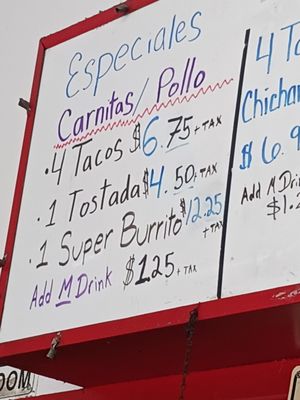 Especiales
Carnitas/ Pollo
• 4 Tacos $6.75 + TAX
• 1 Tostada $4.50 + TAX
• 1 Super Burrito $12.25 + TAX
Add M Drink $1.25 + TAX
4 Ta
Chichar
$6.9
Add M Drin
$1.2
OM